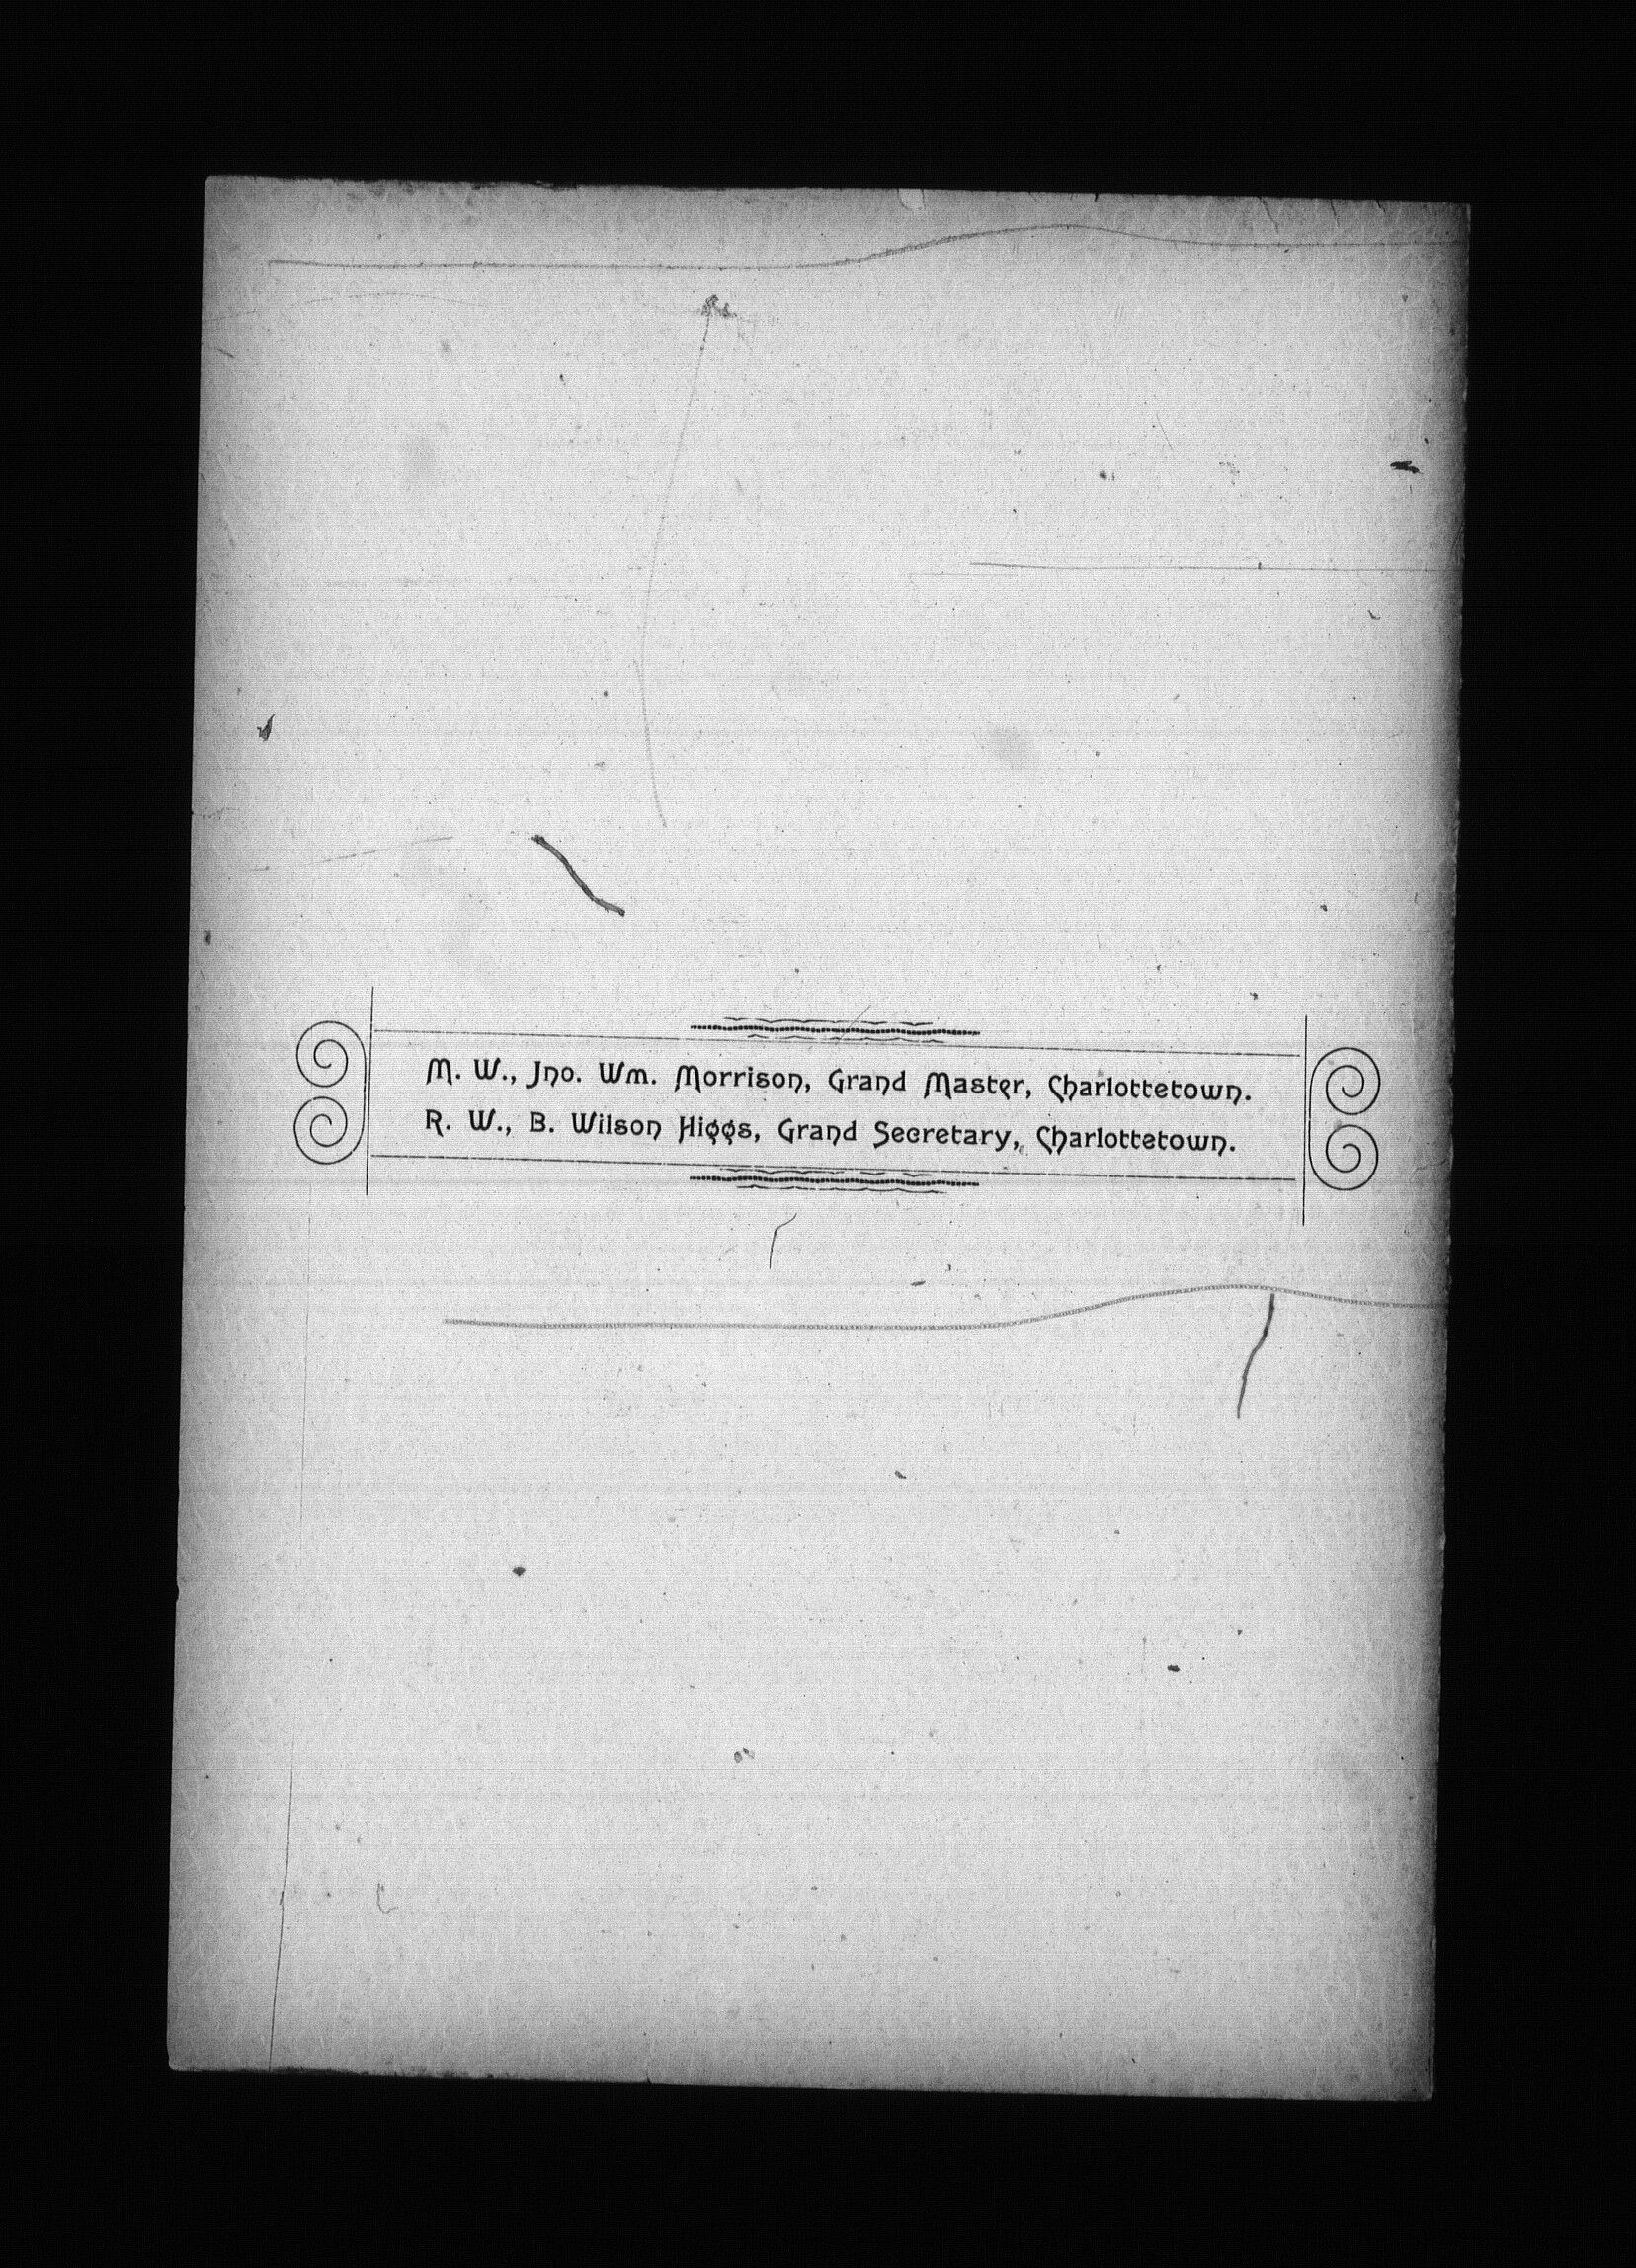 M. W., Jno. Wm. Morrison, Grand Master, Charlottetown.
R. W., B. Wilson Higgs, Grand Secretary, Charlottetown.